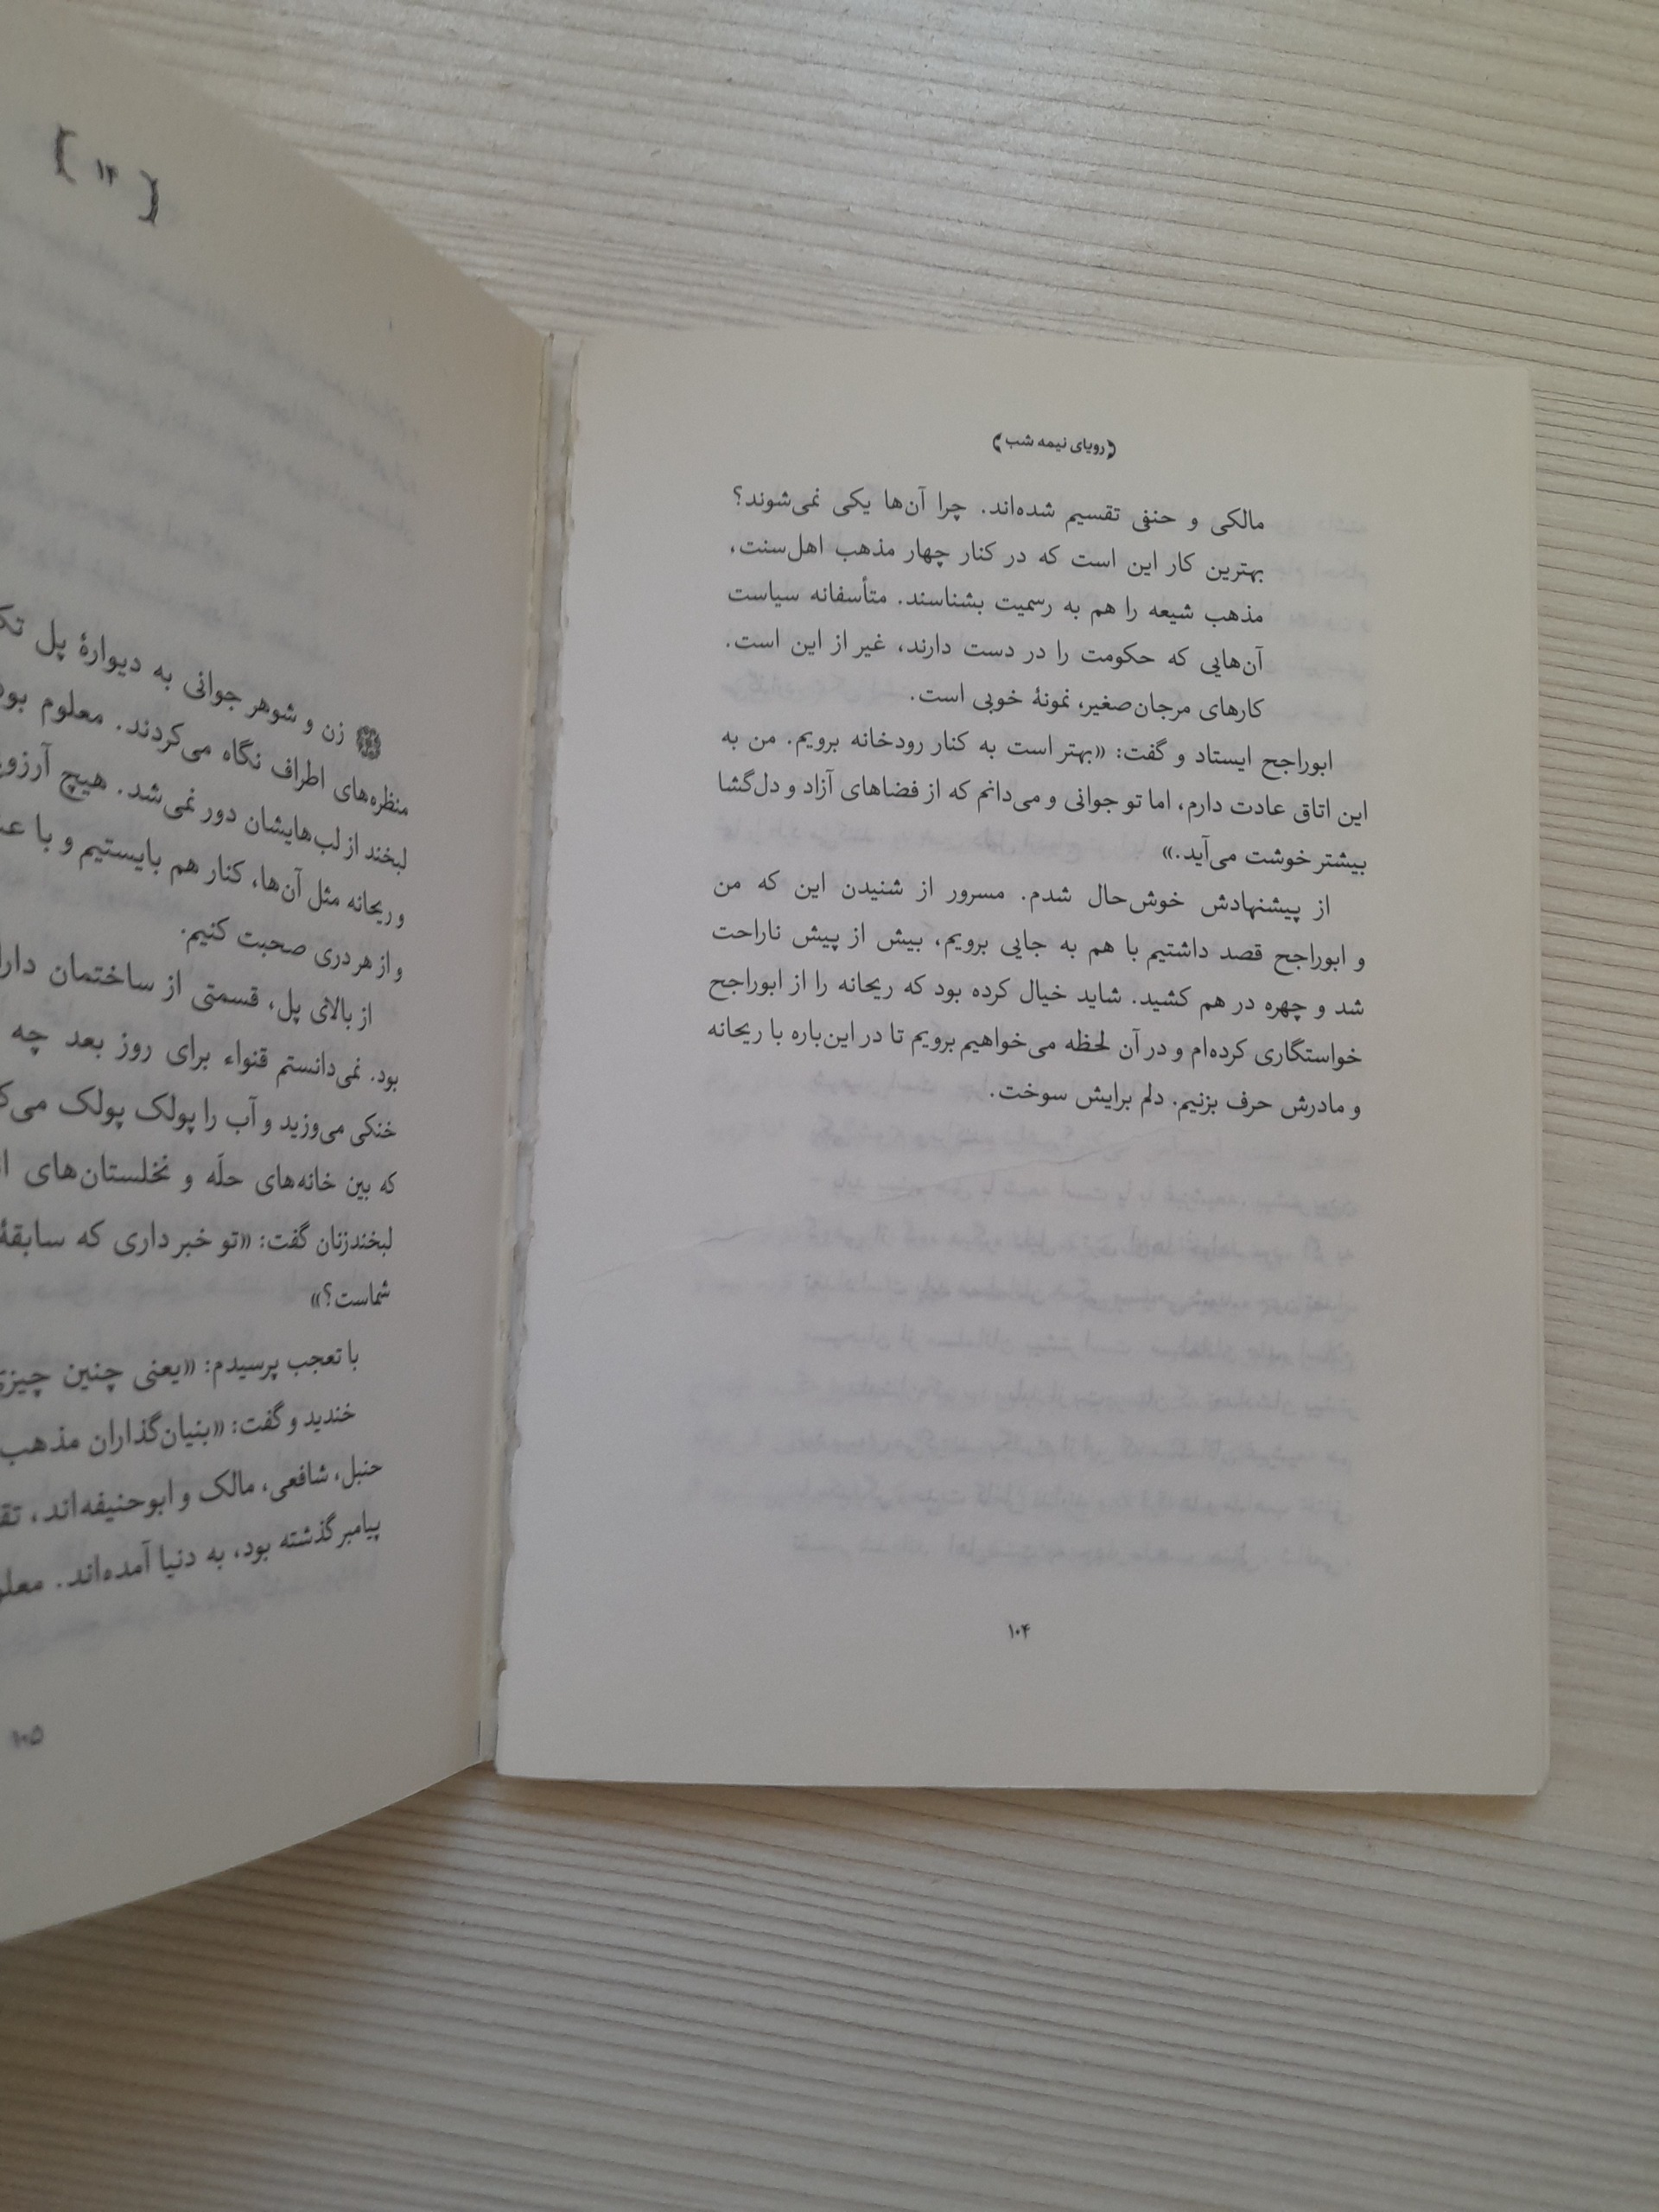 ﴿رویای نیمه شب﴾
مالکی و حنفی تقسیم شده‌اند. چرا آن‌ها یکی نمی‌شوند؟
بهترین کار این است که در کنار چهار مذهب اهل‌سنت،
مذهب شیعه را هم به رسمیت بشناسند. متأسفانه سیاست
آن‌هایی که حکومت را در دست دارند، غیر از این است.
کارهای مرجان‌صغیر، نمونهٔ خوبی است.
ابوراجح ایستاد و گفت: «بهتر است به کنار رودخانه برویم. من به
این اتاق عادت دارم، اما تو جوانی و می‌دانم که از فضاهای آزاد و دل‌گشا
بیشتر خوشت می‌آید.»
از پیشنهادش خوش‌حال شدم. مسرور از شنیدن این که من
و ابوراجح قصد داشتیم با هم به جایی برویم، بیش از پیش ناراحت
شد و چهره در هم کشید. شاید خیال کرده بود که ریحانه را از ابوراجح
خواستگاری کرده‌ام و در آن لحظه می‌خواهیم برویم تا در این‌باره با ریحانه
و مادرش حرف بزنیم. دلم برایش سوخت.
۱۰۴
{ ۱۴ }
زن و شوهر جوانی به دیوارهٔ پل
منظره‌های اطراف نگاه می‌کردند. معلوم
لبخند از لب‌هایشان دور نمی‌شد. هیچ
و ریحانه مثل آن‌ها، کنار هم بایستیم و با
و از هر دری صحبت کنیم.
از بالای پل، قسمتی از ساختمان
بود. نمی‌دانستم قنواء برای روز بعد چه
خنکی می‌وزید و آب را پولک پولک
که بین خانه‌های حلّه و نخلستان‌های
لبخندزنان گفت: «تو خبر داری که سابقهٔ
شماست؟»
با تعجب پرسیدم: «یعنی چنین
خندید و گفت: «بنیان‌گذاران مذهب
حنبل، شافعی، مالک و ابوحنیفه‌اند،
پیامبر گذشته بود، به دنیا آمده‌اند.
۱۰۵